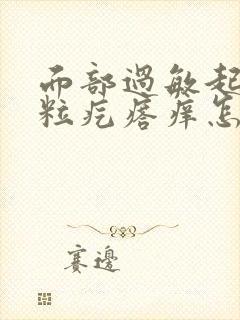 面部過敏起
粒疙瘩痒怎
賽邊